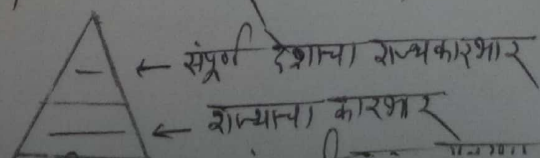 ← संपूर्ण देशाचा राज्यकारभार
← राज्याचा कारभार